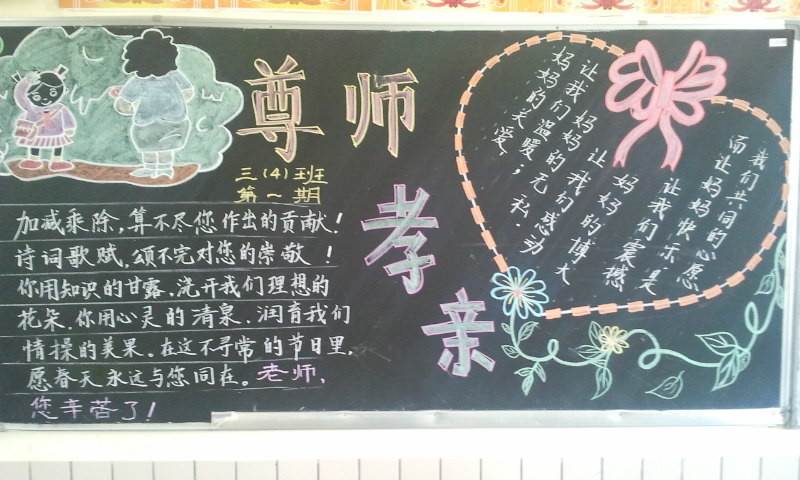 尊师
孝亲
三(4)班
第一期
加减乘除,算不尽您作出的贡献!
诗词歌赋,颂不完对您的崇敬!
你用知识的甘露、浇开我们理想的
花朵.你用心灵的清泉.润育我们
情操的美果。在这不寻常的节日里,
愿春天永远与您同在。老师,
您辛苦了!
妈妈的关爱,
让我们温暖;
妈妈的无私.
让我们感动
妈妈的博大
让我们震撼
而让妈妈快乐,是
我们共同的心愿